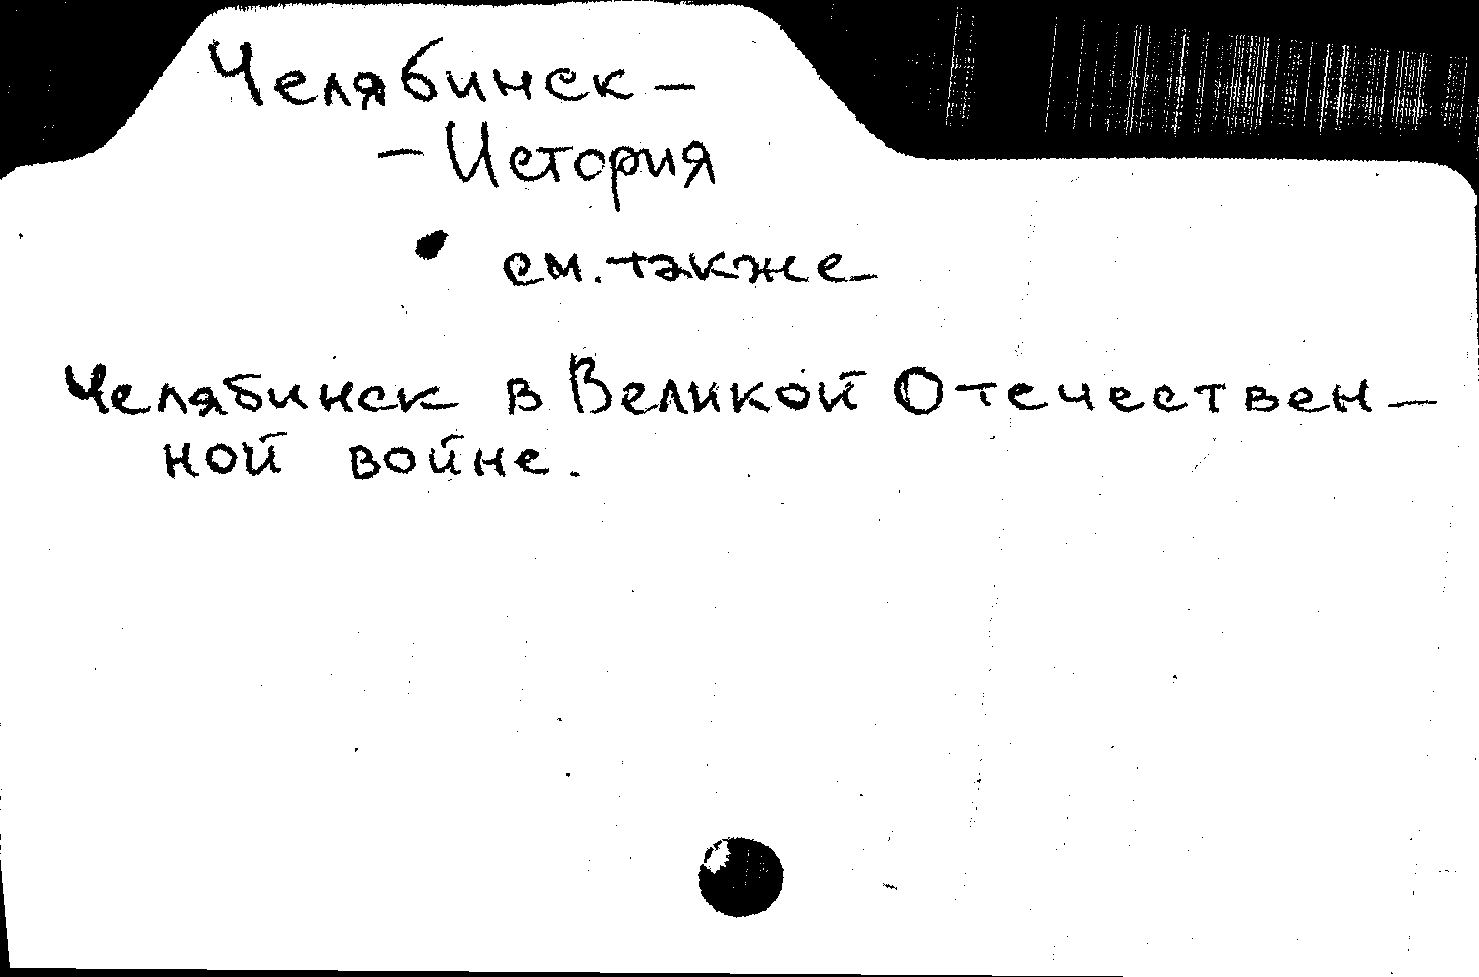 Челябинск –
– История
см. также
Челябинск в Великой Отечествен–
ной войне.